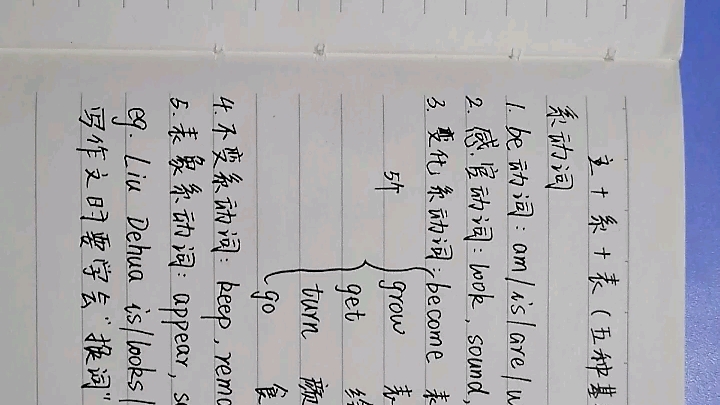 主+系+表(五种基
系动词
1. be动词: am/is/are/w
2. 感官动词: look, sound,
3. 变化系动词: become 表
5个
grow 表
get
turn 颜
go 食
4. 不变系动词: keep, rema
5. 表象系动词: appear, s
eg. Liu Dehua is/looks/
写作文时要学会"换词"